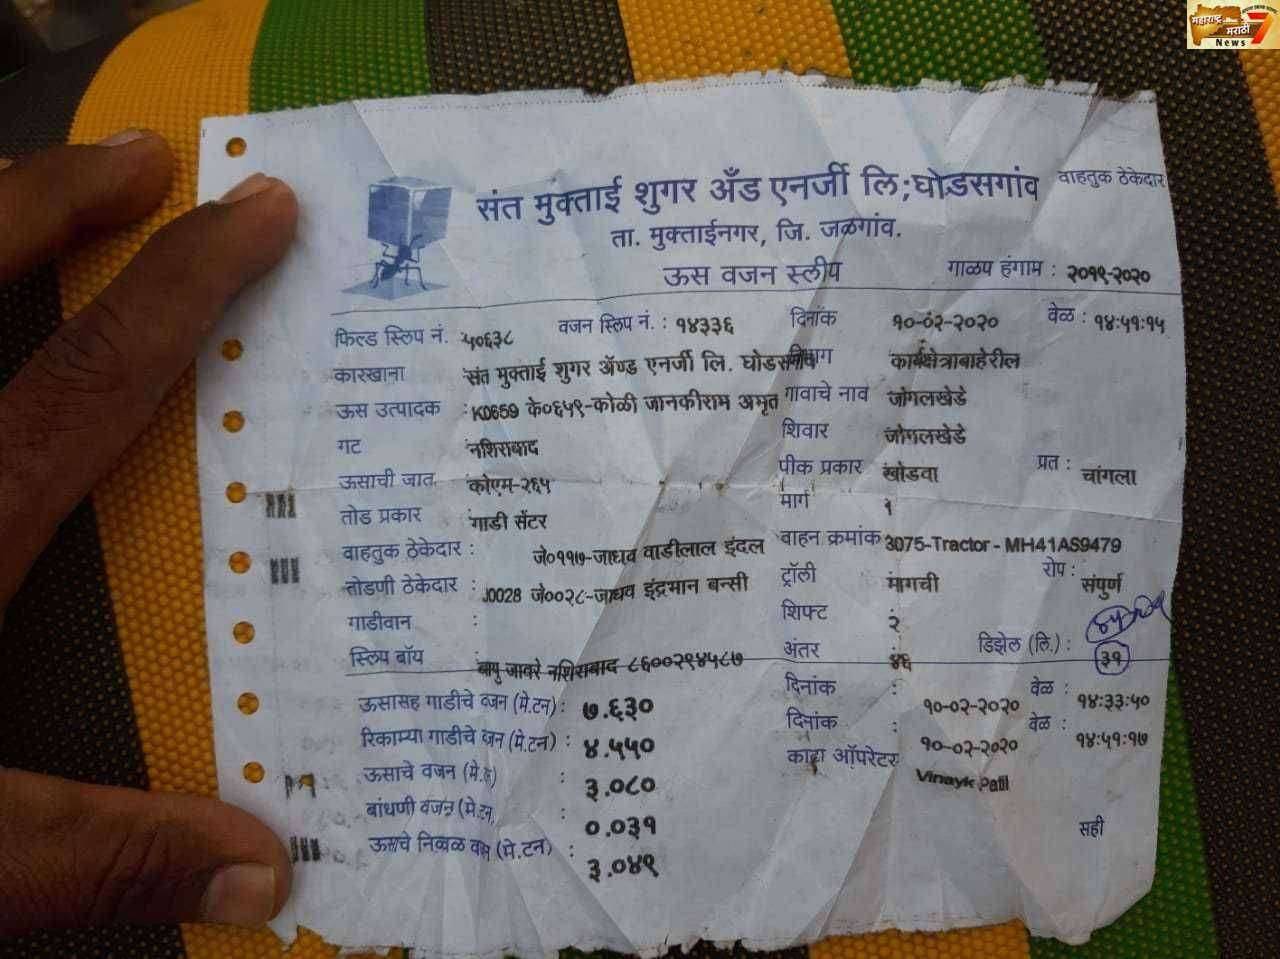 महाराष्ट्र मराठी 7 News
वाहतुक ठेकेदार
संत मुक्ताई शुगर अँड एनर्जी लि;घोडसगांव
ता. मुक्ताईनगर, जि. जळगांव.
ऊस वजन स्लीप गाळप हंगाम : २०१९-२०२०
फिल्ड स्लिप नं. ५०६३८ वजन स्लिप नं. : १४३३६ दिनांक १०-०२-२०२० वेळ : १४:५१:१५
कारखाना संत मुक्ताई शुगर ॲण्ड एनर्जी लि. घोडसगांव विभाग कार्यक्षेत्राबाहेरील
ऊस उत्पादक : K0659 के०६५९-कोळी जानकीराम अमृत गावाचे नाव जोगलखेडे
गट नशिराबाद शिवार जोगलखेडे
ऊसाची जात कोएम-२६५ पीक प्रकार खोडवा प्रत : चांगला
तोड प्रकार गाडी सेंटर मार्ग १
वाहतुक ठेकेदार : जे०११७-जाधव वाडीलाल इंदल वाहन क्रमांक 3075-Tractor - MH41AS9479
तोडणी ठेकेदार : J0028 जे००२८-जाधव इंद्रभान बन्सी ट्रॉली मागची रोप : संपुर्ण
गाडीवान : शिफ्ट २
स्लिप बॉय बापु जावरे नशिराबाद ८६००२९४५८७ अंतर ४६ डिझेल (लि.) : ३१
ऊसासह गाडीचे वजन (मे.टन) : ७.६३० दिनांक : १०-०२-२०२० वेळ : १४:३३:५०
रिकाम्या गाडीचे वजन (मे.टन) : ४.५५० दिनांक : १०-०२-२०२० वेळ : १४:५१:१७
ऊसाचे वजन (मे.ट) : ३.०८० काटा ऑपरेटर Vinayk Patil
बांधणी वजन (मे.टन) : ०.०३१
ऊसाचे निव्वळ वजन (मे.टन) : ३.०४९ सही